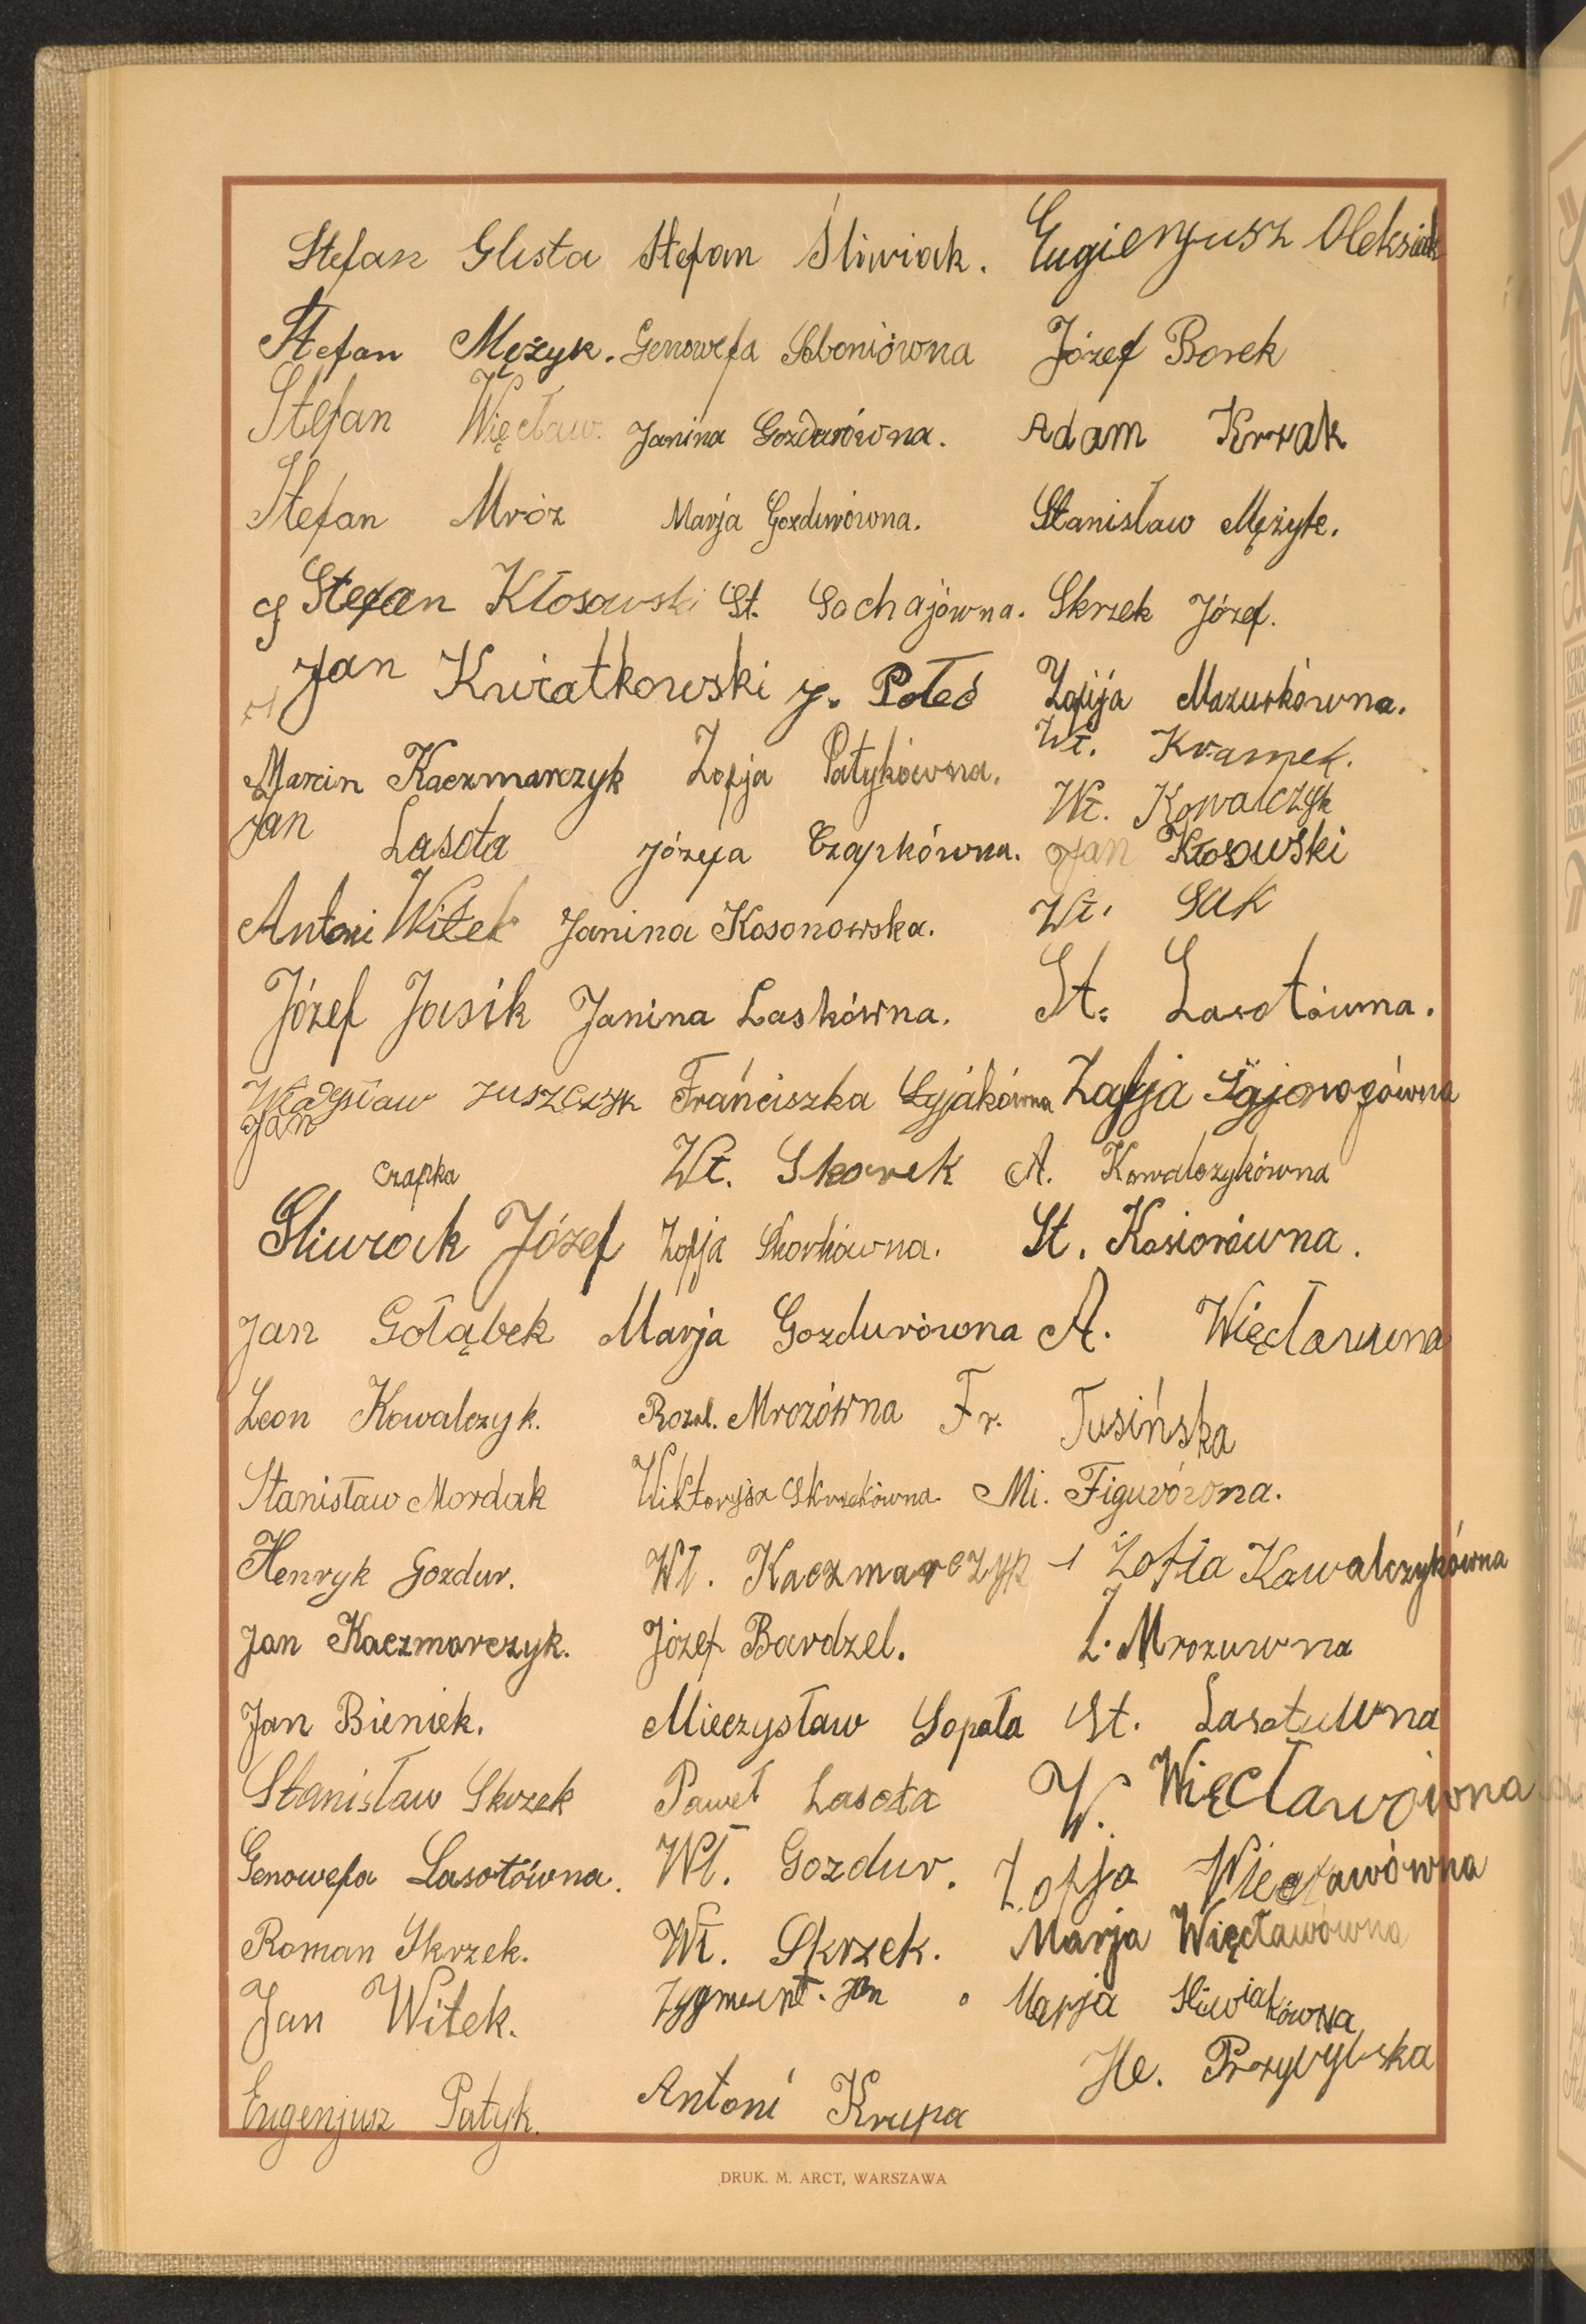 Stefan Glista Stefan Śliwiak. Eugienjusz Oleksiak
Stefan Mężyk. Genowefa Soboniówna Józef Borek
Stefan Więcław. Janina Gozdurówna. Adam Krzak
Stefan Mróz Marja Gozdurówna. Stanisław Mężyk.
Stefan Kłosowski St. Sochajówna. Skrzek Józef.
Jan Kwiatkowski J. Połeć Zofija Mazurkówna.
Marcin Kaczmarczyk Zofja Patykówna. Wł. Krampek.
Wł. Kowalczyk
Jan Lasota Józefa Czapkówna. Jan Kłosowski
Antoni Witek Janina Kosonowska. Wł. Sak
Józef Jasik Janina Laskówna. St. Lasotówna.
Władysław Juszczyk Franciszka Zofja
Jan Czapka Wł. Skorek A. Kowalczykówna
Sliwiak Józef Zofja Skorkówna. St. Kosiorówna.
Jan Gołąbek Marja Gozdurówna A. Więcławwna
Leon Kowalczyk. Rozal. Mrozówna Fr. Tusińska
Stanisław Mordak Wiktoryja Skrzekówna. Mi. Figurówna.
Henryk Gozdur. Wł. Kaczmarczyk Zofia Kowalczykówna
Jan Kaczmarczyk. Józef Bardzel. L. Mrozuwna
Jan Bieniek. Mieczysław Sopała St. Lasotuwna
Stanisław Skrzek Paweł Lasota W. Więcławówna
Genowefa Lasotówna. Wł. Gozdur. Zofja Więcławówna
Roman Skrzek. Wł. Skrzek. Marja Więcławówna
Jan Witek. Zygmunt. Jan Marja Sliwiakówna
He. Przybylska
Eugenjusz Patyk. Antoni Krupa
DRUK. M. ARCT, WARSZAWA